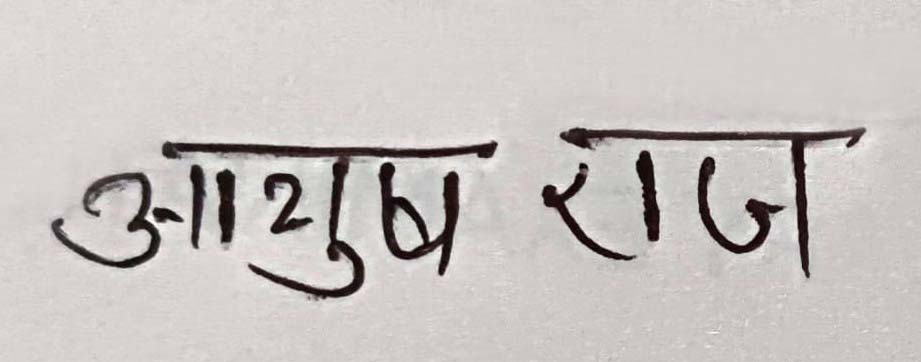 आयुष राज